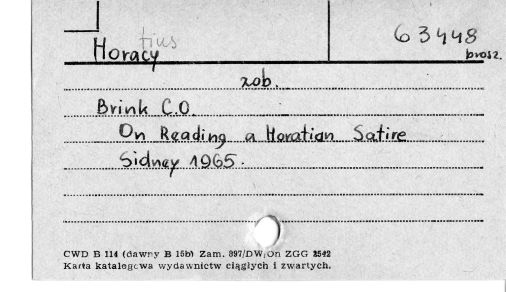 tius
63448
Horacy
brosz.
zob.
Brink C.O.
On Reading a Horatian Satire
Sidney 1965.
CWD B 114 (dawny B 15b) Zam. 397/DW/On ZGG 2542
Karta katalogowa wydawnictw ciągłych i zwartych.